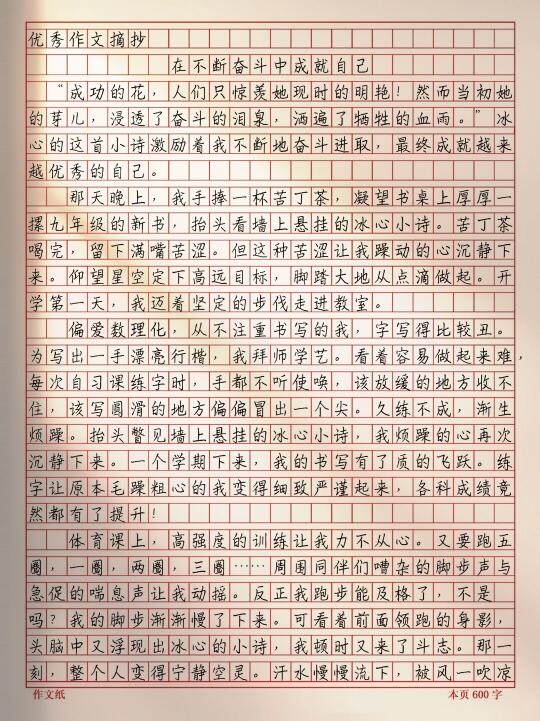 优秀作文摘抄
在不断奋斗中成就自己
“成功的花，人们只惊羡她现时的明艳！然而当初她
的芽儿，浸透了奋斗的泪泉，洒遍了牺牲的血雨。”冰
心的这首小诗激励着我不断地奋斗进取，最终成就越来
越优秀的自己。
那天晚上，我手捧一杯苦丁茶，凝望书桌上厚厚一
摞九年级的新书，抬头看墙上悬挂的冰心小诗。苦丁茶
喝完，留下满嘴苦涩。但这种苦涩让我躁动的心沉静下
来。仰望星空定下高远目标，脚踏大地从点滴做起。开
学第一天，我迈着坚定的步伐走进教室。
偏爱数理化，从不注重书写的我，字写得比较丑。
为写出一手漂亮行楷，我拜师学艺。看着容易做起来难，
每次自习课练字时，手都不听使唤，该放缓的地方收不
住，该写圆滑的地方偏偏冒出一个尖。久练不成，渐生
烦躁。抬头瞥见墙上悬挂的冰心小诗，我烦躁的心再次
沉静下来。一个学期下来，我的书写有了质的飞跃。练
字让原本毛躁粗心的我变得细致严谨起来，各科成绩竟
然都有了提升！
体育课上，高强度的训练让我力不从心。又要跑五
圈，一圈，两圈，三圈……周围同伴们嘈杂的脚步声与
急促的喘息声让我动摇。反正我跑步能及格了，不是
吗？我的脚步渐渐慢了下来。可看着前面领跑的身影，
头脑中又浮现出冰心的小诗，我顿时又来了斗志。那一
刻，整个人变得宁静空灵。汗水慢慢流下，被风一吹凉
作文纸
本页 600 字